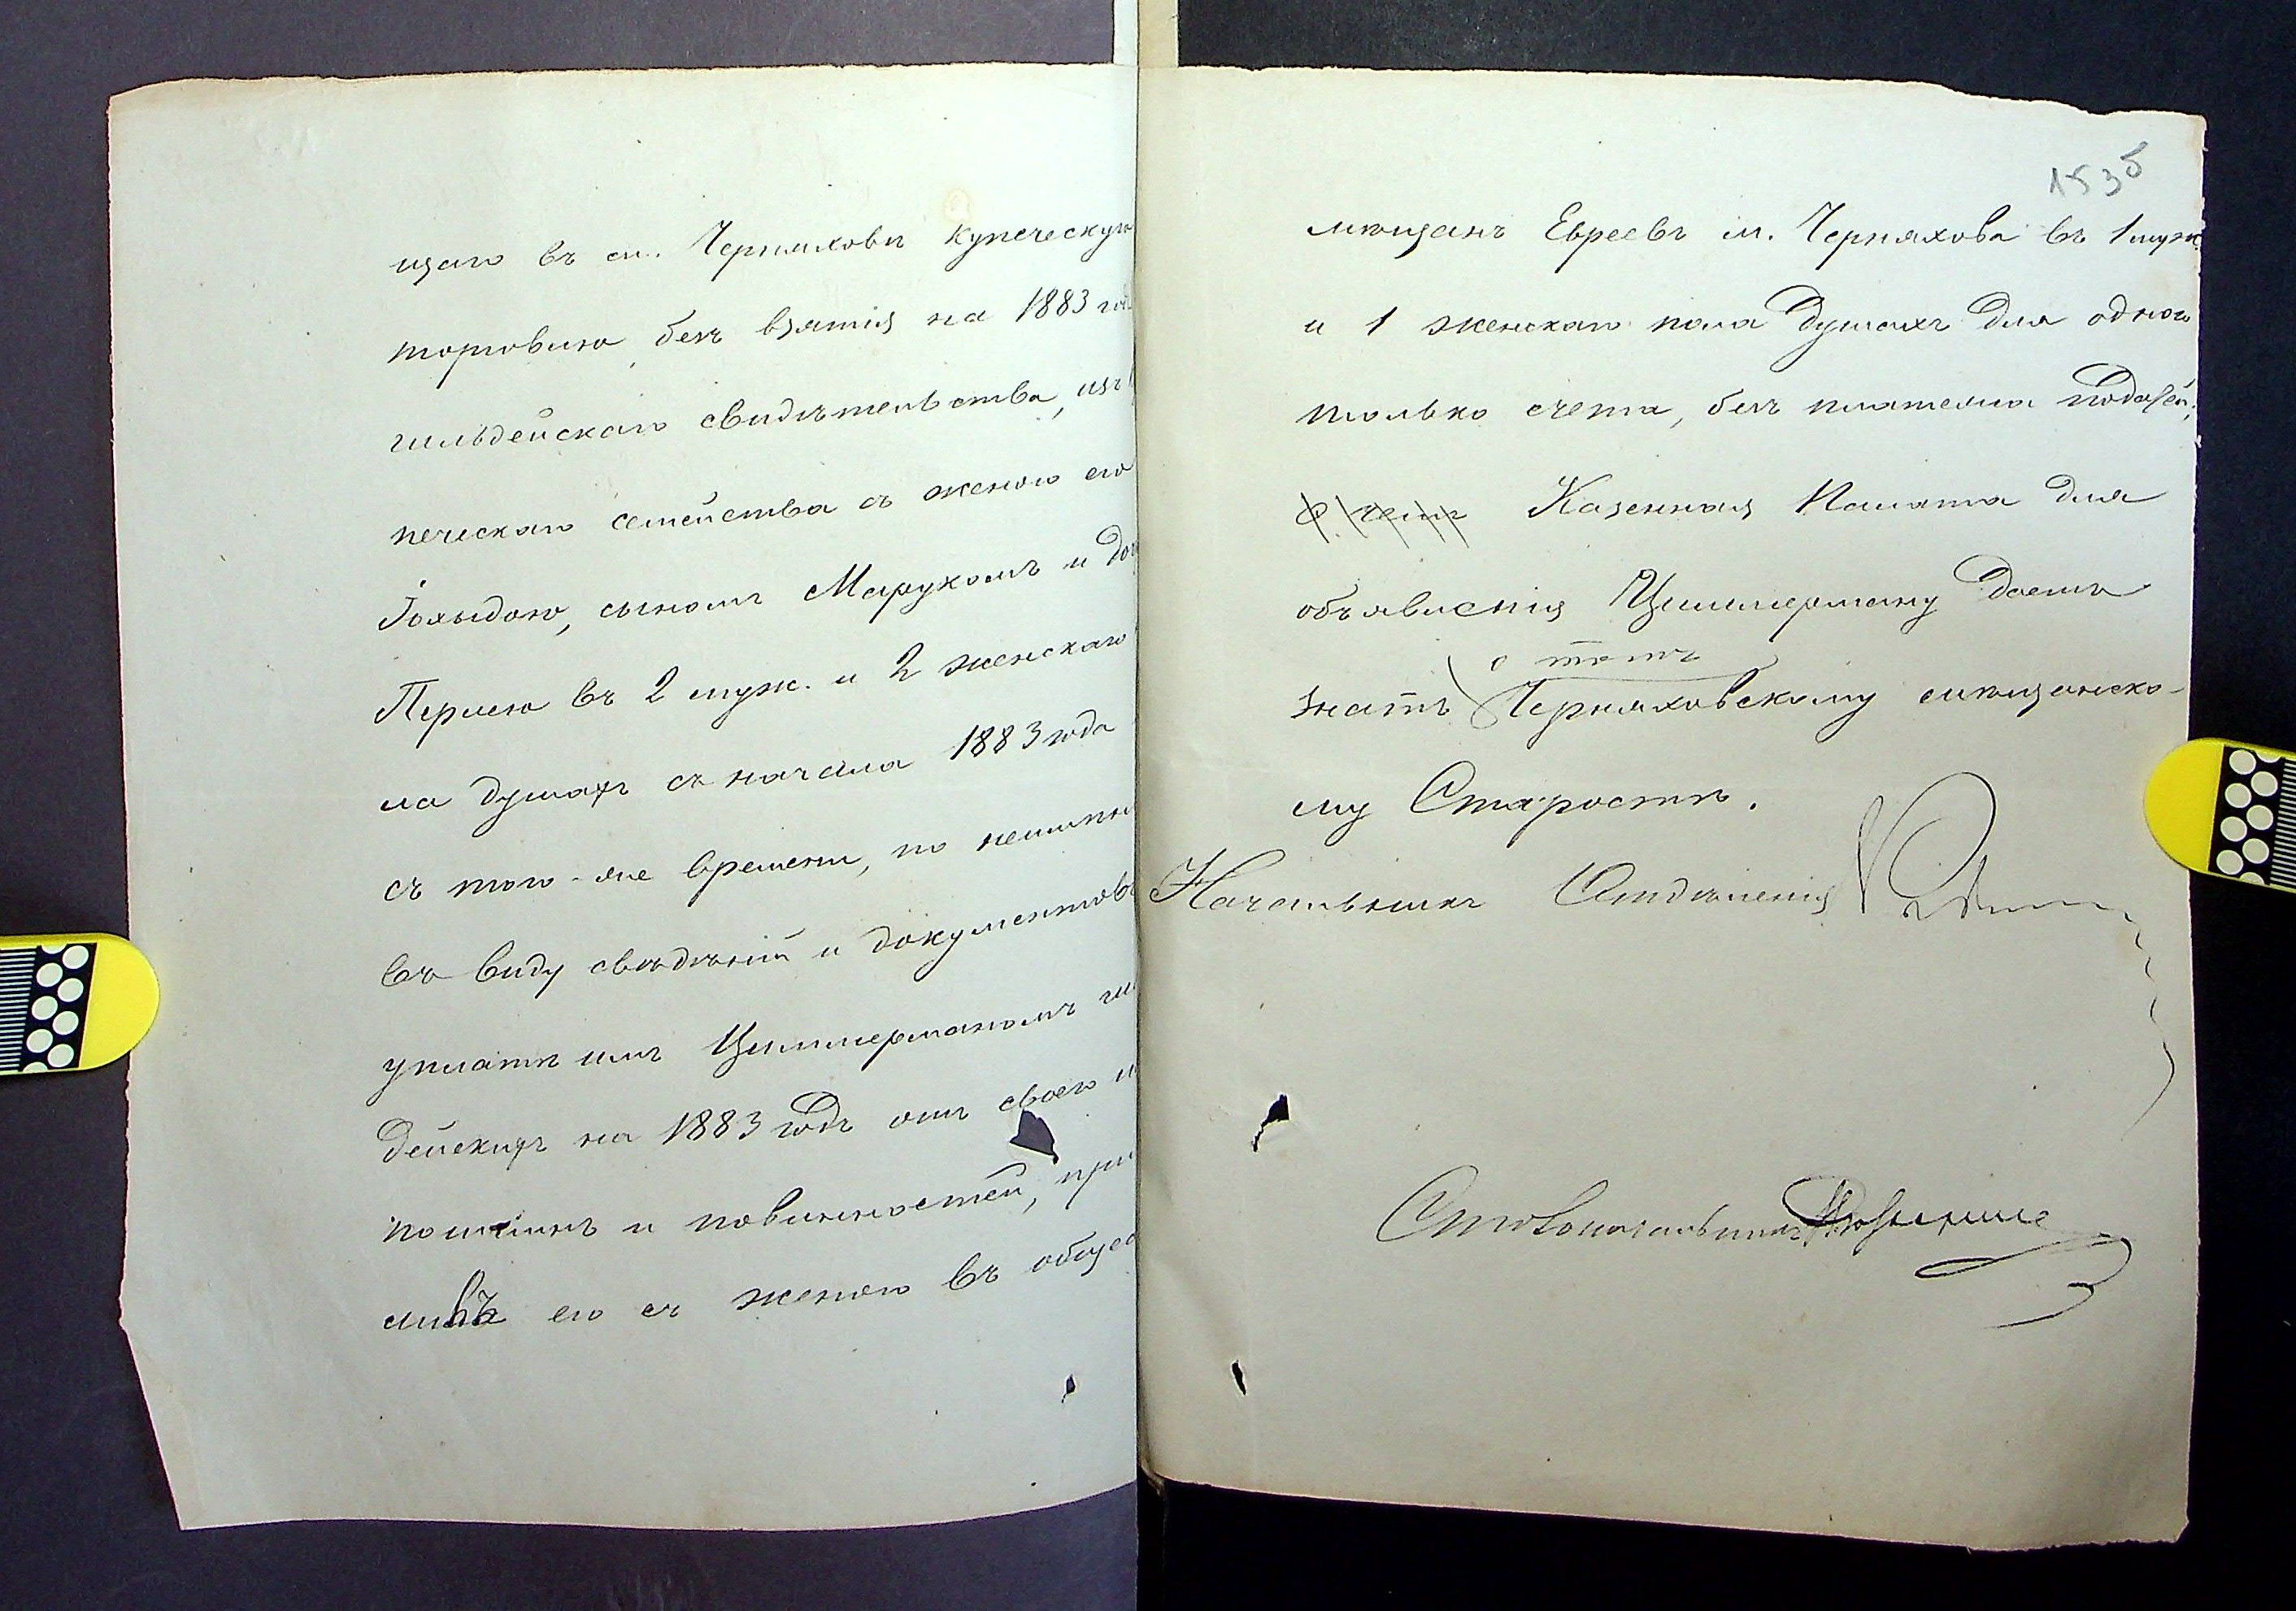 щаго въ м. Черняховѣ купеческую
торговлю, безъ взятія на 1883 годъ
гильдейскаго свидѣтельства, изъ
печескаго семейства съ женою его
сыномъ Марукомъ и до
Перлею въ 2 муж. и 2 женскаго
ла душахъ съ начала 1883 года
съ того-же времени, по неимѣн
въ виду свѣдѣній и документовъ
уплатѣ имъ Циммерманомъ гил
дейскихъ на 1883 годъ отъ своего и
пошлинъ и повинностей, при
его съ женою въ общес
1535
мѣщанъ Евреевъ м. Черняхова въ 1 муж.
и 1 женскаго пола душахъ для одного
только счета, безъ платежа податей,
О чемъ Казенная Палата для
объявленія Циммерману даетъ
о томъ
знать Черняховскому мѣщанско-
му Старостѣ.
Начальникъ Отдѣленія
Столоначальникъ